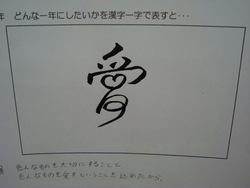 年 どんな一年にしたいかを漢字一字で表すと・・・
愛
色んなものを大切にすることと
色んなものを愛すということを込めたから。